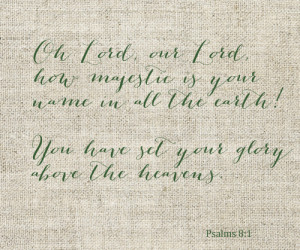 Oh Lord, our Lord,
how majestic is your
name in all the earth!
You have set your glory
above the heavens.
Psalms 8:1